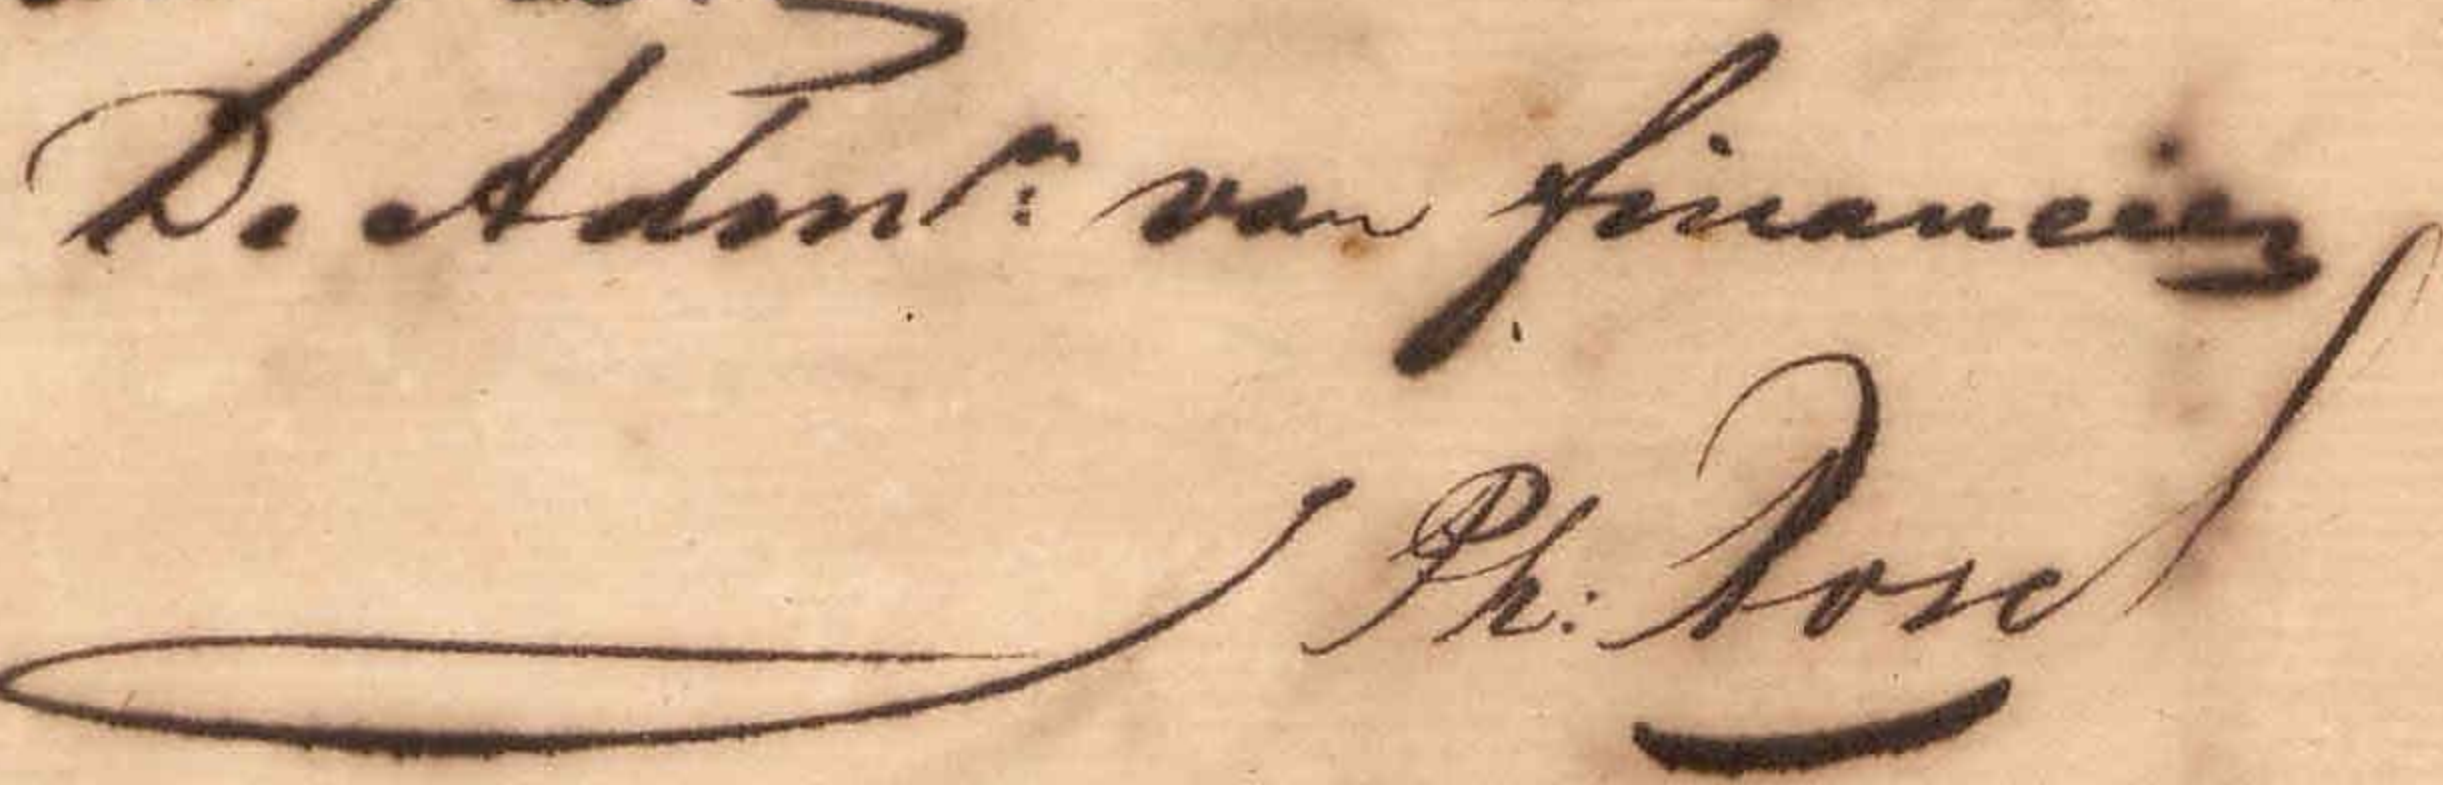 De Adm.r: van financien
Ph: Rose